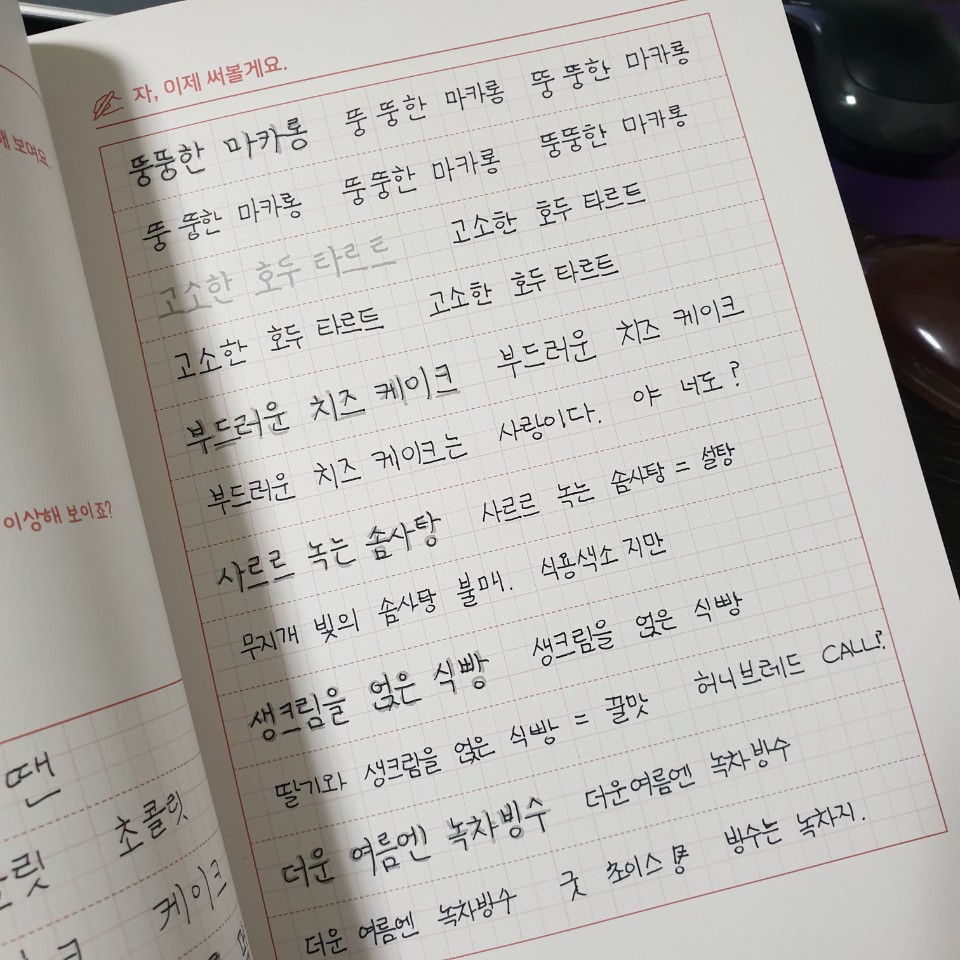 자, 이제 써볼게요.
뚱뚱한 마카롱 뚱뚱한 마카롱 뚱뚱한 마카롱
뚱뚱한 마카롱 뚱뚱한 마카롱 뚱뚱한 마카롱
고소한 호두 타르트 고소한 호두 타르트
고소한 호두 타르트 고소한 호두 타르트
부드러운 치즈 케이크 부드러운 치즈 케이크
부드러운 치즈 케이크는 사랑이다. 야 너도?
사르르 녹는 솜사탕 사르르 녹는 솜사탕 = 설탕
무지개 빛의 솜사탕 불매. 식용색소 지만
생크림을 얹은 식빵 생크림을 얹은 식빵
딸기와 생크람을 얹은 식빵 = 꿀맛 허니브레드 CALL?
더운 여름엔 녹차빙수 더운여름엔 녹차방수
더운 여름엔 녹차방수 굿 쵸이스 방수는 녹차지.
보여요
이상해 보이죠?
땐
릿 초콜릿
크 케이크